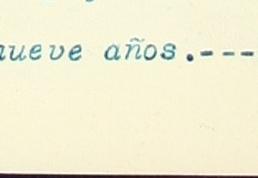 nueve años.---